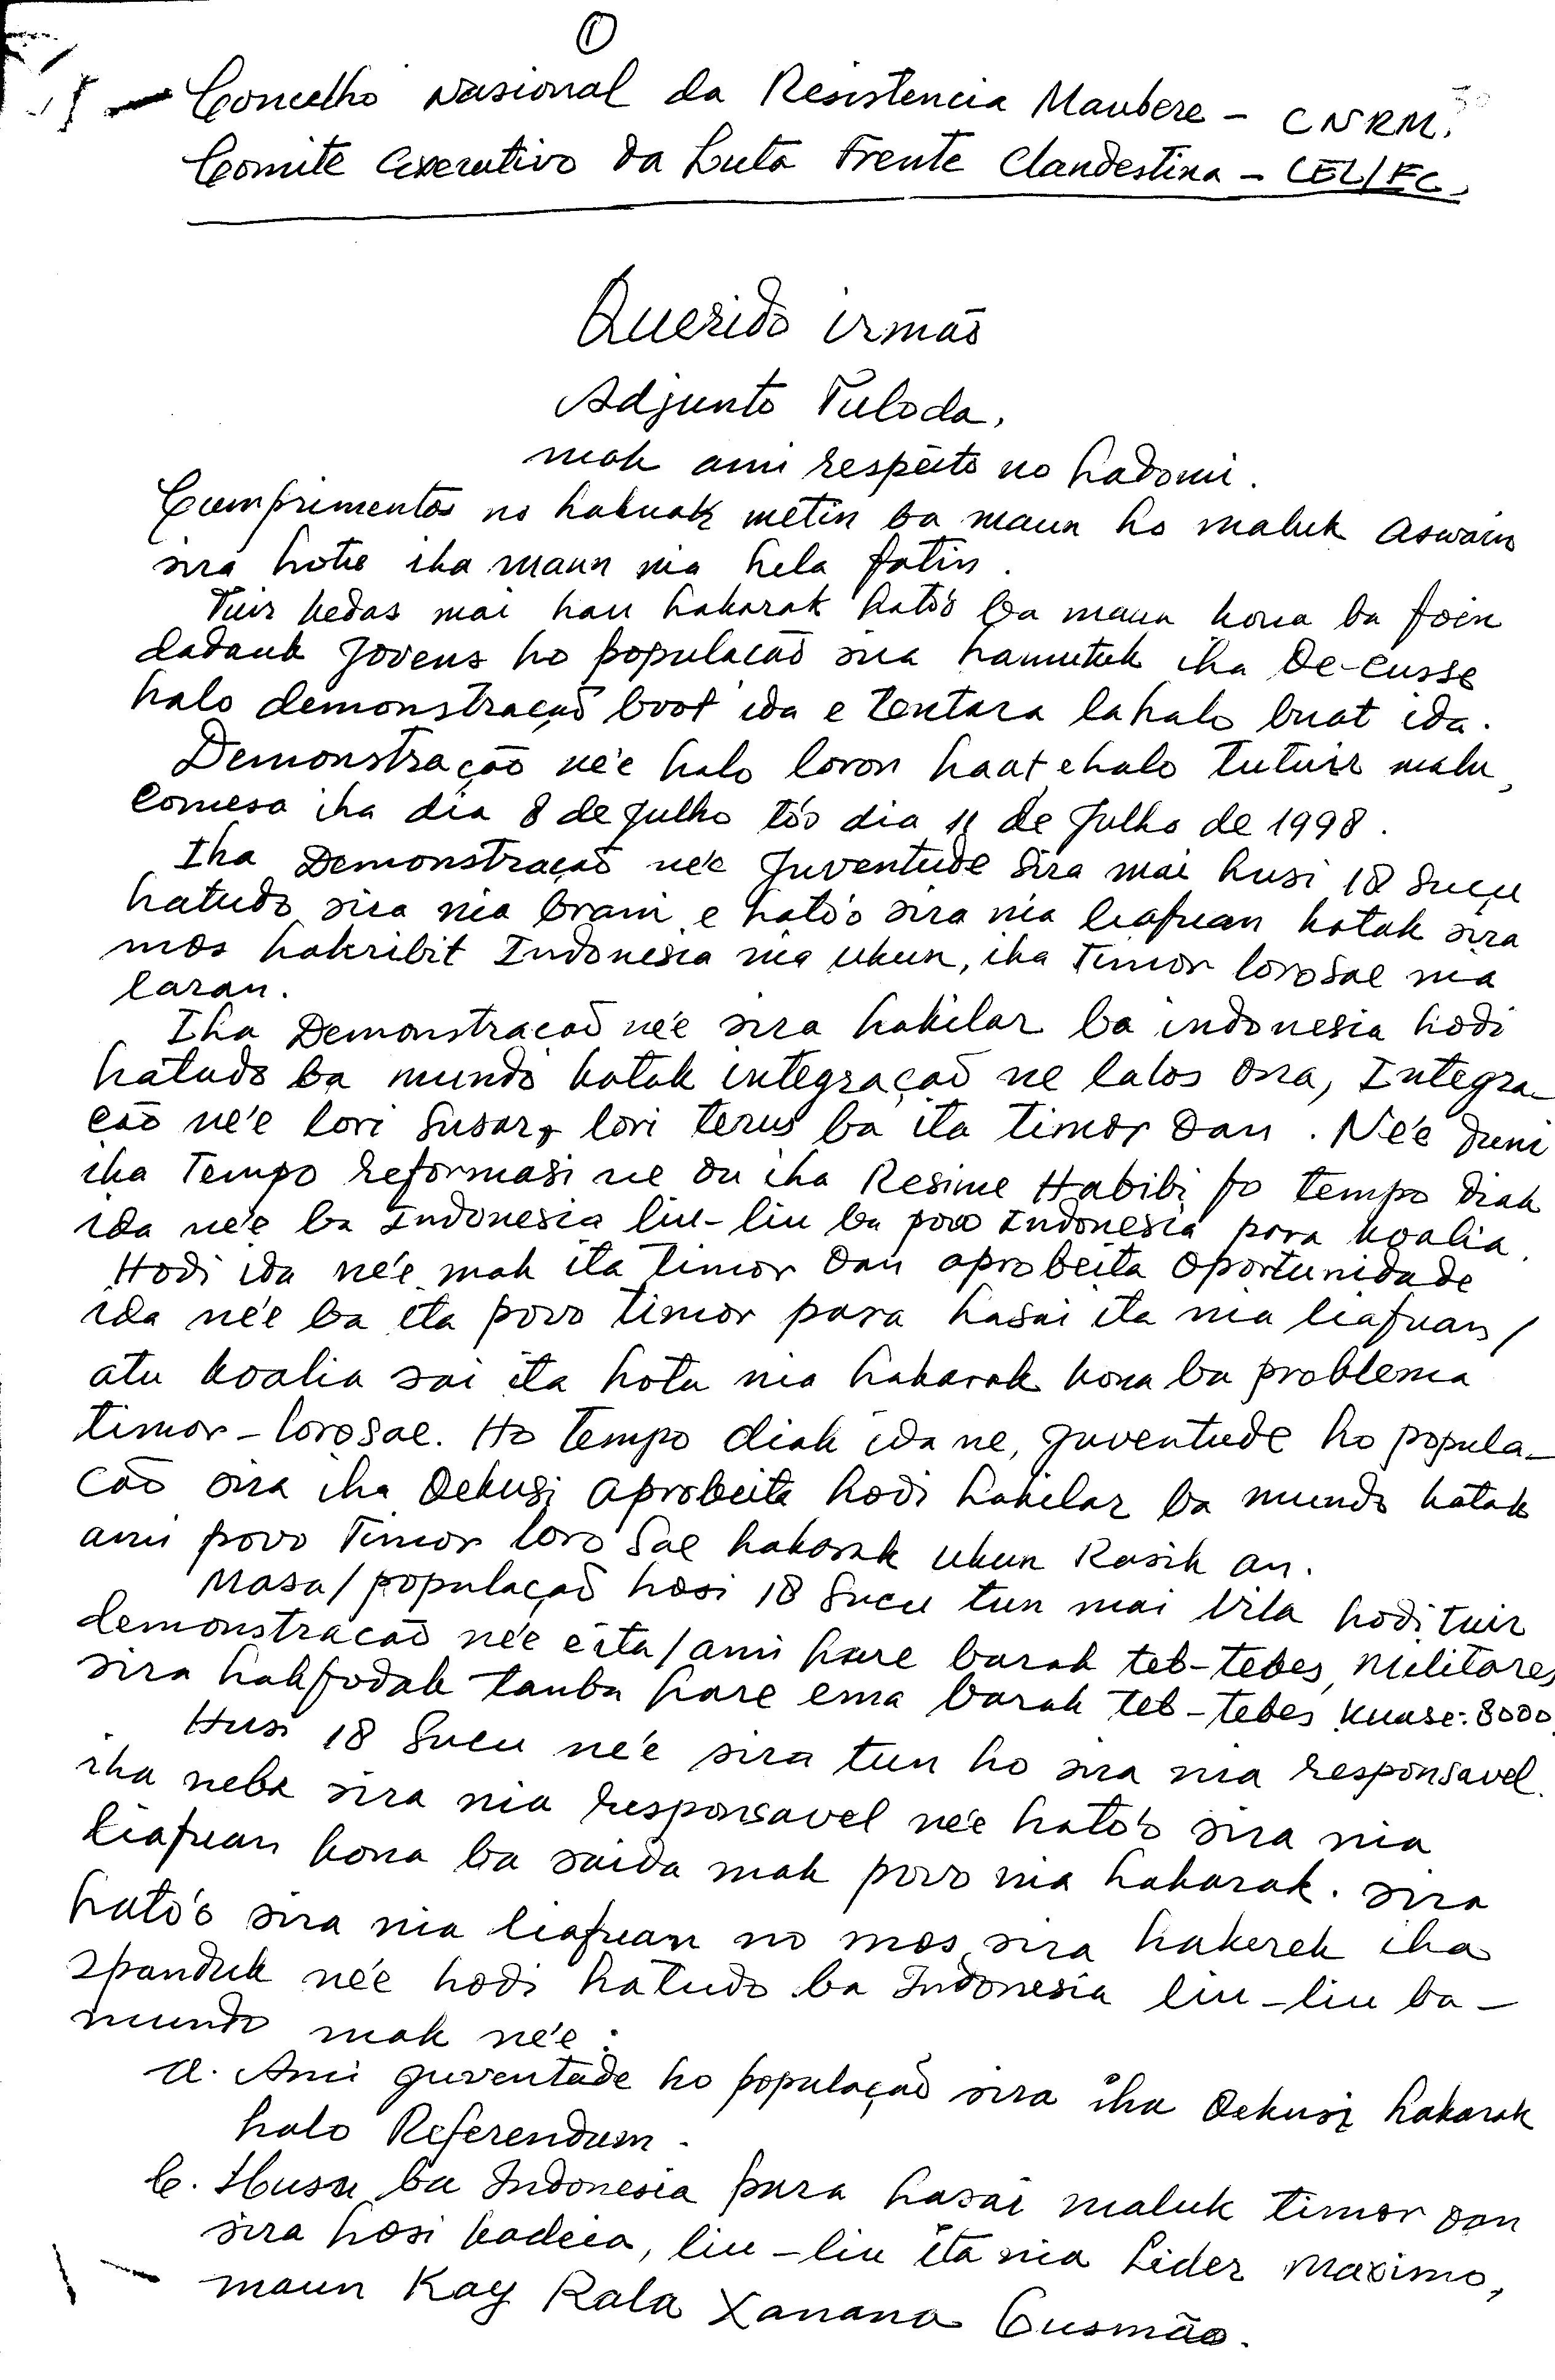 ①
Concelho Nasional da Resistencia Maubere - CNRM.
Comite Executivo da Luta Frente Clandestina - CEL/FC.
Querido irmaõ
Adjunto Tuloda,
mak ami respeito no hadomi.
Cumprimentos no hakuak metin ba maun ho maluk aswain
sira hotu iha maun nia hela fatin.
Tuir kedas mai hau hakarak hato'o ba maun kona ba foin
dadauk Jovens ho populacaõ sira hamutuk iha Oe-cusse
halo demonstraçaõ boot ida e tentara la halo buat ida.
Demonstraçaõ ne'e halo loron haat e halo tutuir malu,
Comesa iha dia 8 de Julho to'o dia 11 de Julho de 1998.
Iha Demonstraçaõ ne'e Juventude sira mai husi 18 Suçu
hatudo sira nia brani e hato'o sira nia liafuan katak sira
mos hakribit Indonesia nia ukun, iha Timor lorosae nia
laran.
Iha Demonstracaõ ne'e sira hakilar ba indonesia hodi
hatudo ba mundo katak integraçaõ ne lalos ona, Integra-
caõ ne'e lori susar, lori terus ba ita timor oan. Ne'e duni
iha Tempo reformasi ne ou iha Resime Habibi fo tempo diak
ida ne'e ba Indonesia liu-liu ba povo Indonesia para koalia.
Hodi ida ne'e mak ita Timor Oan aprobeita oportunidade
ida ne'e ba ita povo timor para hasai ita nia liafuan/
atu koalia sai ita hotu nia hakarak kona ba problema
timor-lorosae. Ho tempo diak ida ne, Juventude ho popula-
caõ sira iha Oekusi aprobeita hodi hakilar ba mundo katak
ami povo Timor loro Sae hakarak ukun Rasik an.
Masa/populaçaõ hosi 18 Sucu tun mai Vila hodi tuir
demonstracaõ ne'e ita/ami hare barak teb-tebes, militares
sira hakfodak tanba hare ema barak teb-tebes kuase: 8000.
Husi 18 Sucu ne'e sira tun ho sira nia responsavel.
iha neba sira nia responsavel ne'e hato'o sira nia
liafuan kona ba saida mak povo nia hakarak. sira
hato'o sira nia liafuan no mos sira hakerek iha
spanduk ne'e hodi hatudo ba Indonesia liu-liu ba-
mundo mak ne'e:
a. Ami Juventude ho populaçaõ sira iha Oekusi hakarak
halo Referendum.
b. Husu ba Indonesia para hasai maluk timor oan
sira hosi kadeia, liu-liu ita nia Lider Maximo,
maun Kay Rala Xanana Gusmão.